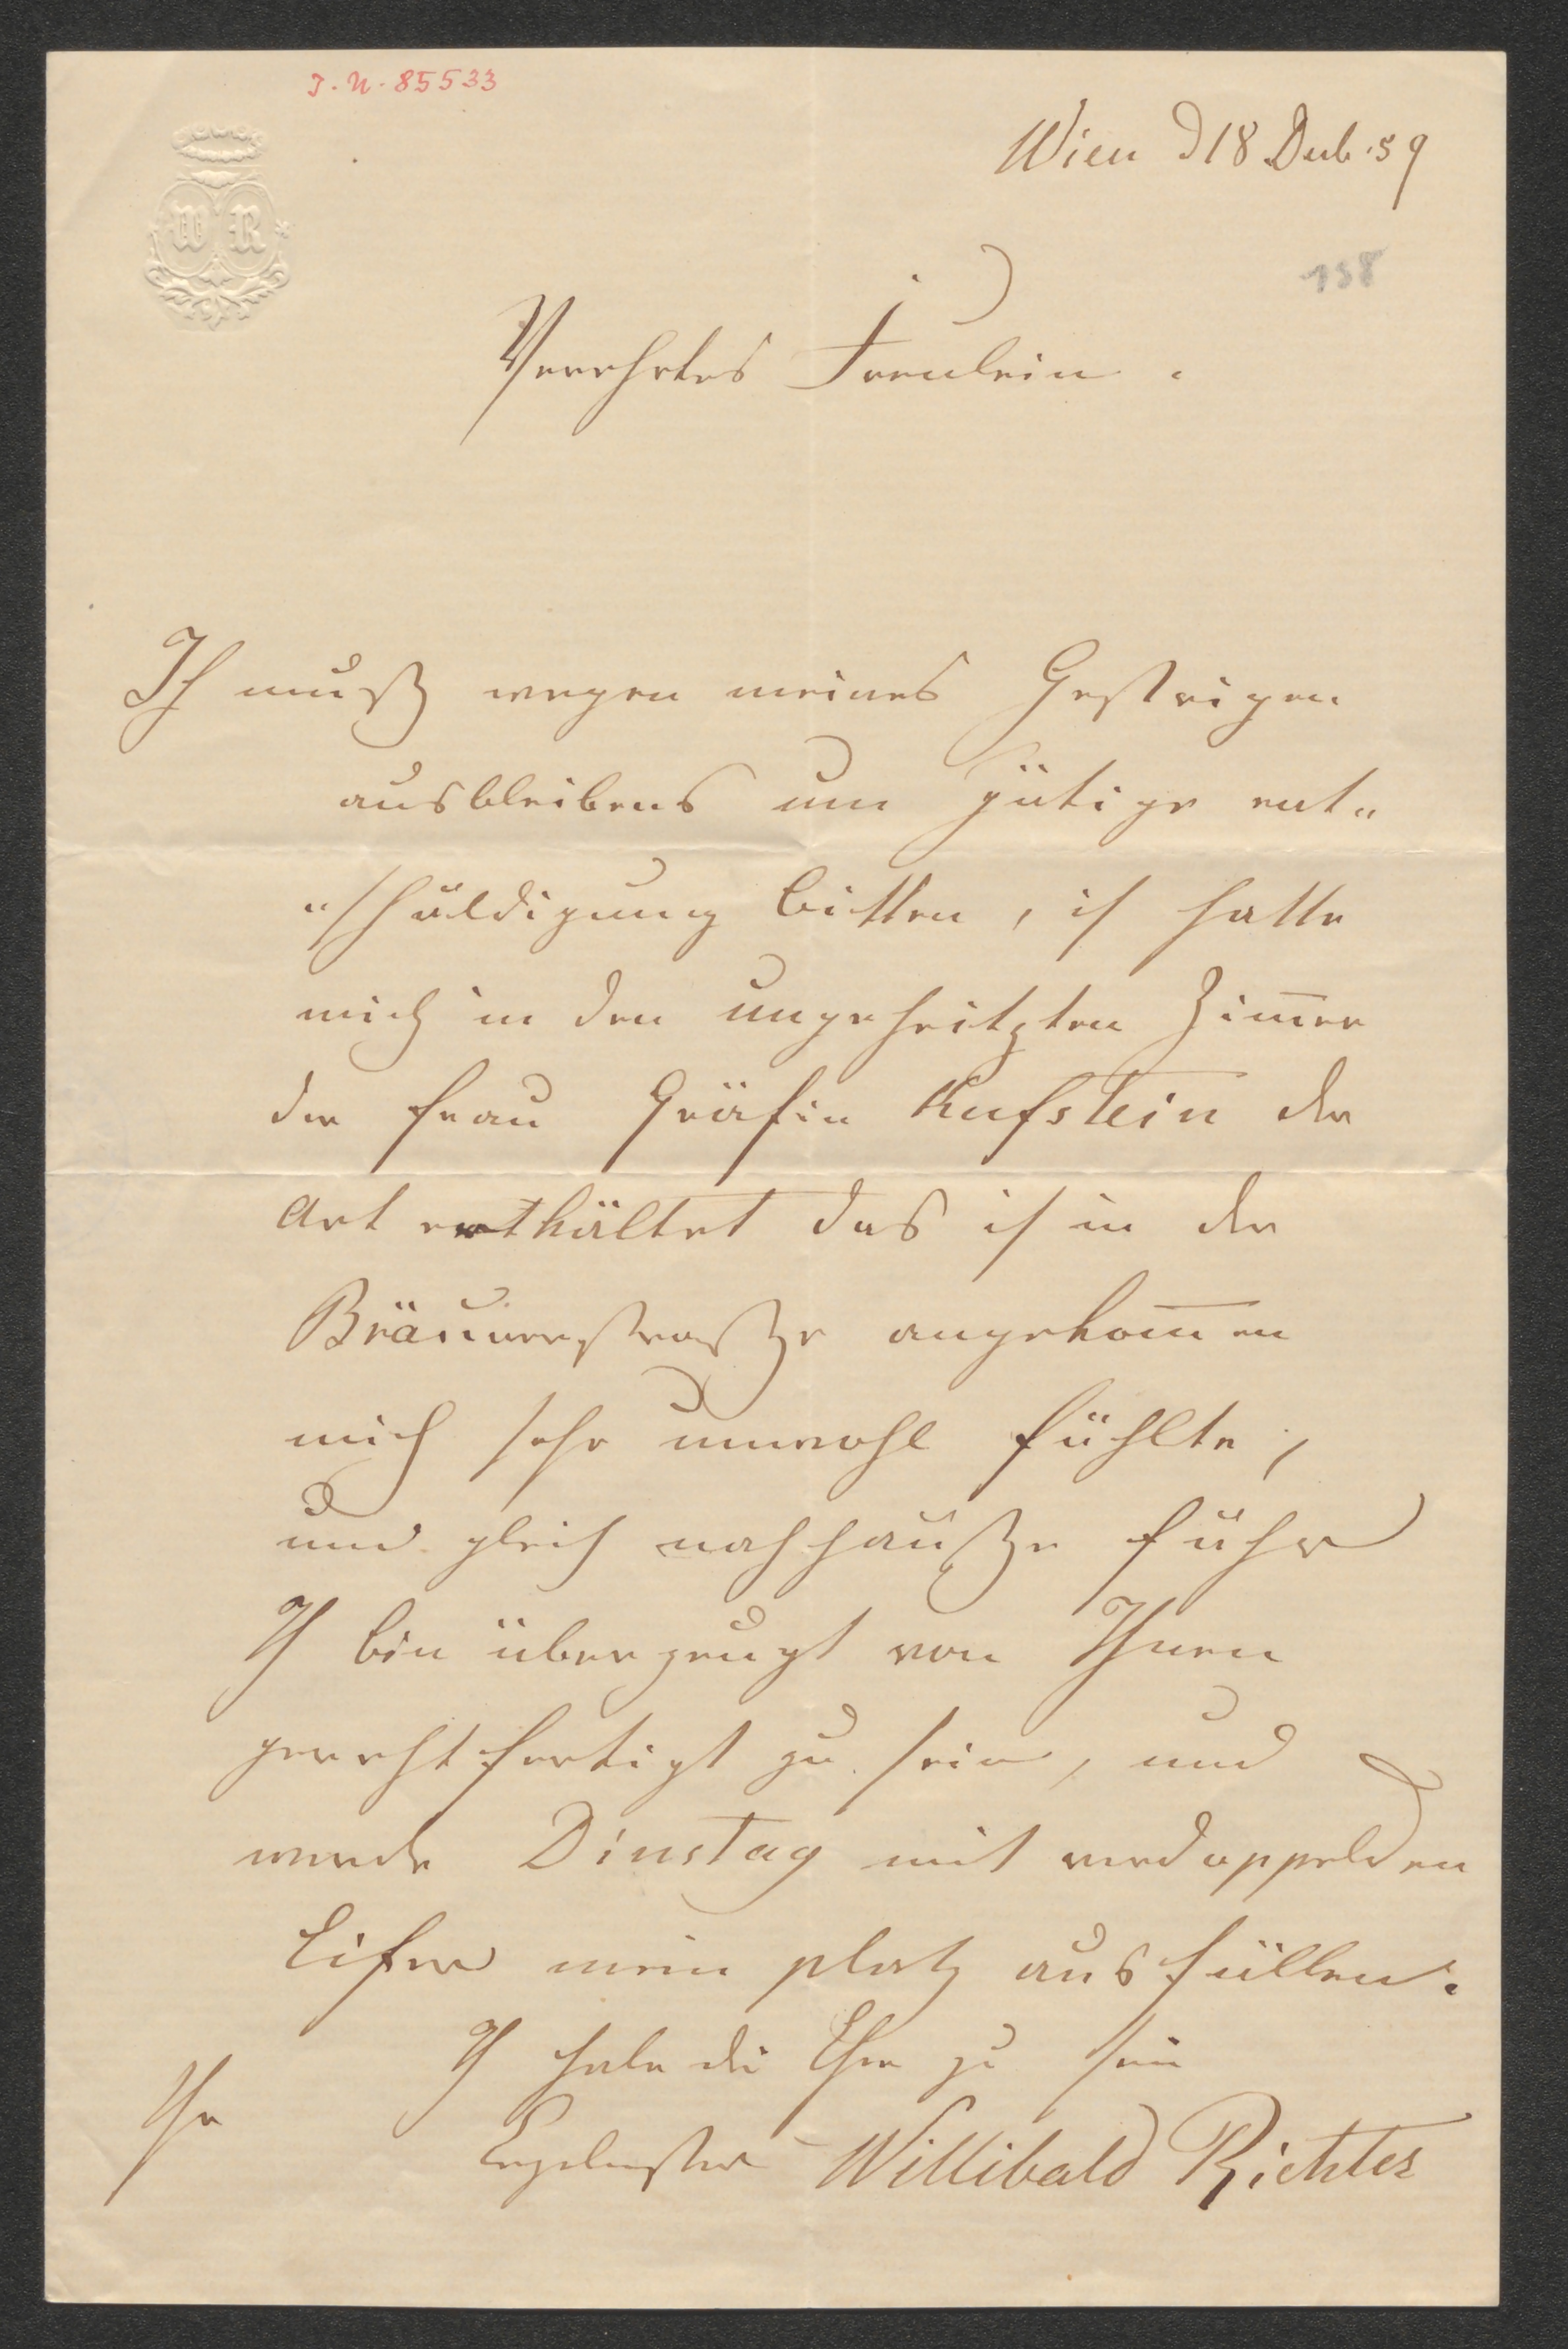 I. N. 85533
Wien d 18 Deb. 59
158
W R
Verehrtes Freulein.
Ich muß wegen meines Gestrigen
ausbleibens um gütige ent„
„schuldigung bitten, ich hatte
mich in den ungeheitzten Zim̄er
der Frau Gräfin Kufstein der
Art erkhältet das ich in der
Bräunerstraße angekom̄en
mich sehr unwohl fühlte,
und gleich nachhauße fuhr
Ich bin überzeugt von Ihnen
gerechtfertigt zu sein, und
werde Dinstag mit verdoppelden
Eifer mein platz ausfüllen.
Ich habe die Ehre zu sein
Ihr
Ergebenster Willibald Richter